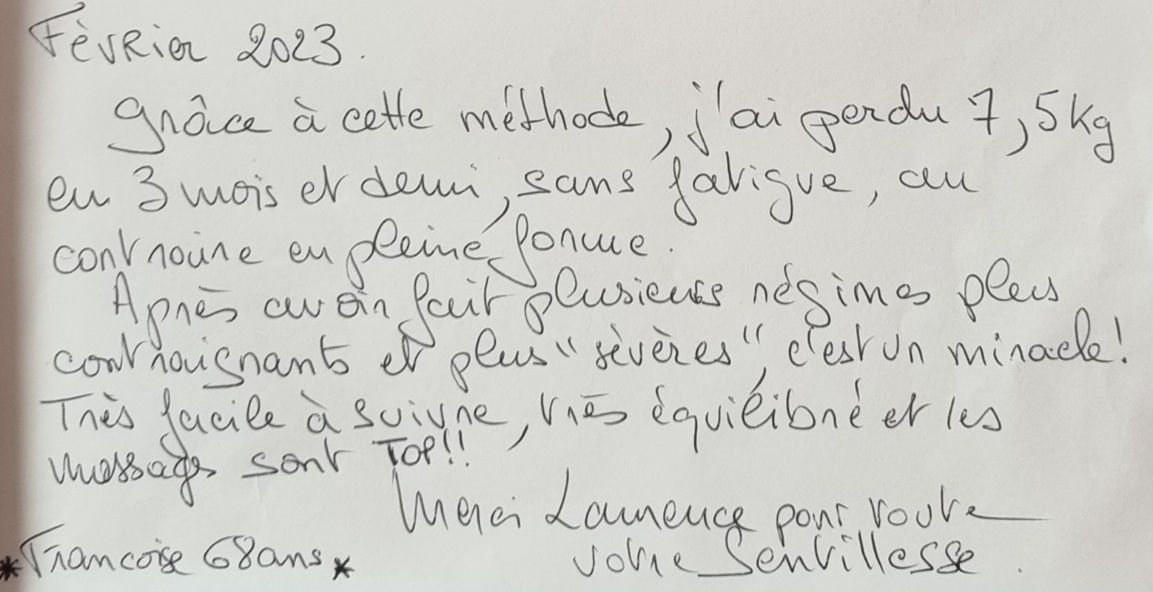 Fèvrier 2023.
Grâce à cette méthode, j'ai perdu 7,5kg
en 3 mois et demi, sans fatigue, au
contraire en pleine forme.
Après avoir fait plusieurs régimes plus
contraignants et plus "sévères", c'est un miracle!
Très facile à suivre, très équilibré et les
messages sont TOP!!
Merci Laurence pour toute
votre Gentillesse.
*Francoise 68ans*